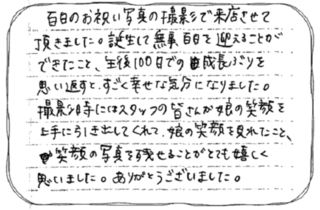 百日のお祝い写真の撮影で来店させて
頂きました。誕生して無事百日を迎えることが
できたこと、生後100日での成長ぶりを
思い返すと、すごく幸せな気分になりました。
撮影時にはスタッフの皆さんが娘の笑顔を
上手に引き出してくれて、娘の笑顔を見れたこと、
笑顔の写真を残せることがとても嬉しく
思いました。ありがとうございました。